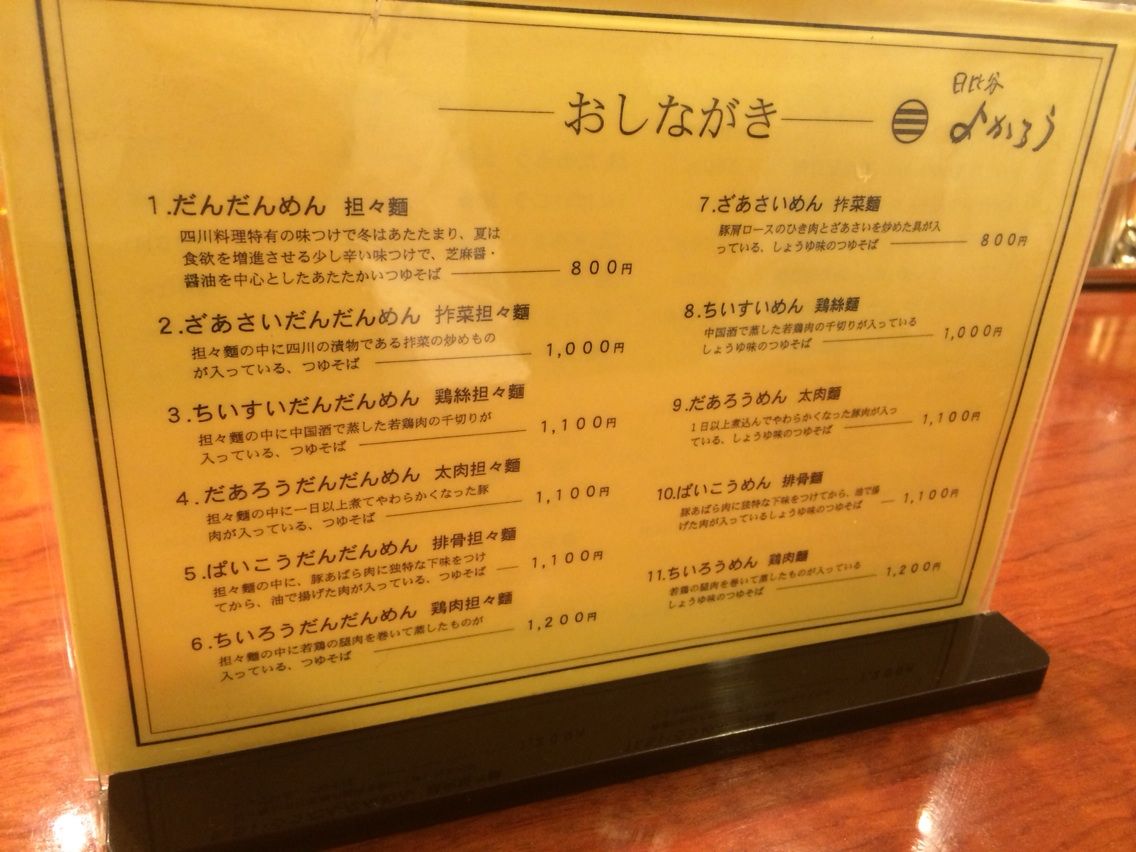 おしながき
日比谷
よかろう
1.だんだんめん 担々麺
四川料理特有の味つけで冬はあたたまり、夏は
食欲を増進させる少し辛い味つけで、芝麻醤・
醤油を中心としたあたたかいつゆそば 800円
2.ざあさいだんだんめん 拃菜担々麺
担々麺の中に四川の漬物である拃菜の炒めもの
が入っている、つゆそば 1,000円
3.ちいすいだんだんめん 鶏絲担々麺
担々麺の中に中国酒で蒸した若鶏肉の千切りが
入っている、つゆそば 1,100円
4.だあろうだんだんめん 太肉担々麺
担々麺の中に一日以上煮てやわらかくなった豚
肉が入っている、つゆそば 1,100円
5.ぱいこうだんだんめん 排骨担々麺
担々麺の中に、豚あばら肉に独特な下味をつけ
てから、油で揚げた肉が入っている、つゆそば 1,100円
6.ちいろうだんだんめん 鶏肉担々麺
担々麺の中に若鶏の腿肉を巻いて蒸したものが
入っている、つゆそば 1,200円
7.ざあさいめん 拃菜麺
豚肩ロースのひき肉とざあさいを炒めた具が入
っている、しょうゆ味のつゆそば 800円
8.ちいすいめん 鶏絲麺
中国酒で蒸した若鶏肉の千切りが入っている
しょうゆ味のつゆそば 1,000円
9.だあろうめん 太肉麺
1日以上煮込んでやわらかくなった豚肉が入っ
ている、しょうゆ味のつゆそば 1,100円
10.ぱいこうめん 排骨麺
豚あばら肉に独特な下味をつけてから、油で揚
げた肉が入っているしょうゆ味のつゆそば 1,100円
11.ちいろうめん 鶏肉麺
若鶏の腿肉を巻いて蒸したものが入っている
しょうゆ味のつゆそば 1,200円